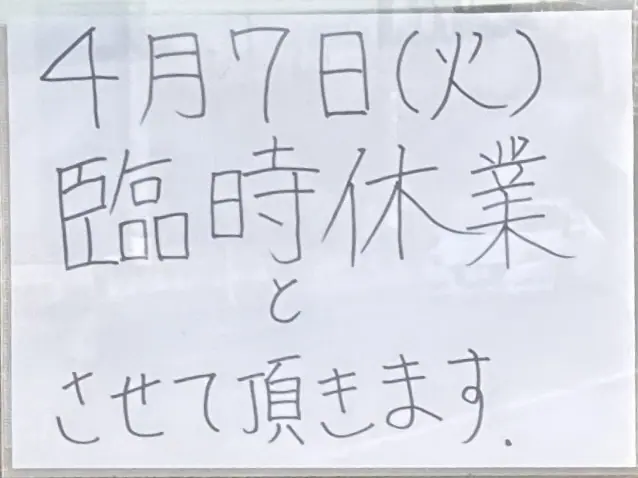 4月7日(火)
臨時休業
と
させて頂きます.